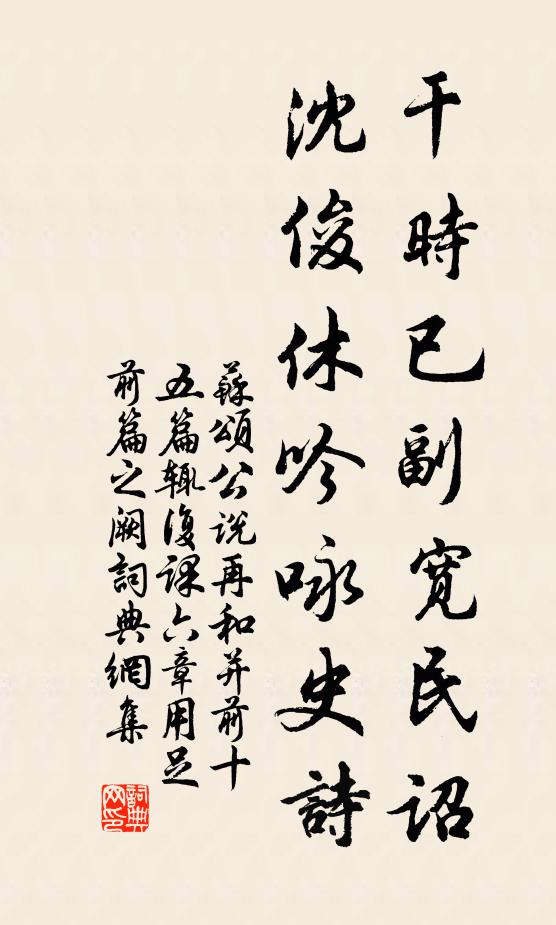 干時已副寬民詔
沈俊休吟咏史詩
蘇頌公說再和并前十
五篇輒復課六章用足
前篇之闕詞典網集
詞典
网印